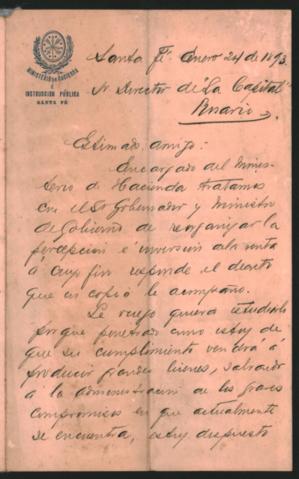 MINISTERIO DE HACIENDA
É
INSTRUCCION PÚBLICA
SANTA FÉ
Santa Fé Enero 24 de 1893.
Sr Director de "La Capital"
Rosario.
Estimado amigo:
Encargado del Minis-
terio de Hacienda tratamos
con el Sr Gobernador y Ministro
de Gobierno de reorganizar la
percepcion é inversion de la renta
á cuyo fin responde el decreto
que en copia le acompaño.
Le ruego quiera estudiarlo
porque penetrado como estoy de
que su cumplimiento vendrá á
producir grandes bienes, salvando
á la administracion de los graves
compromisos en que actualmente
se encuentra, estoy dispuesto